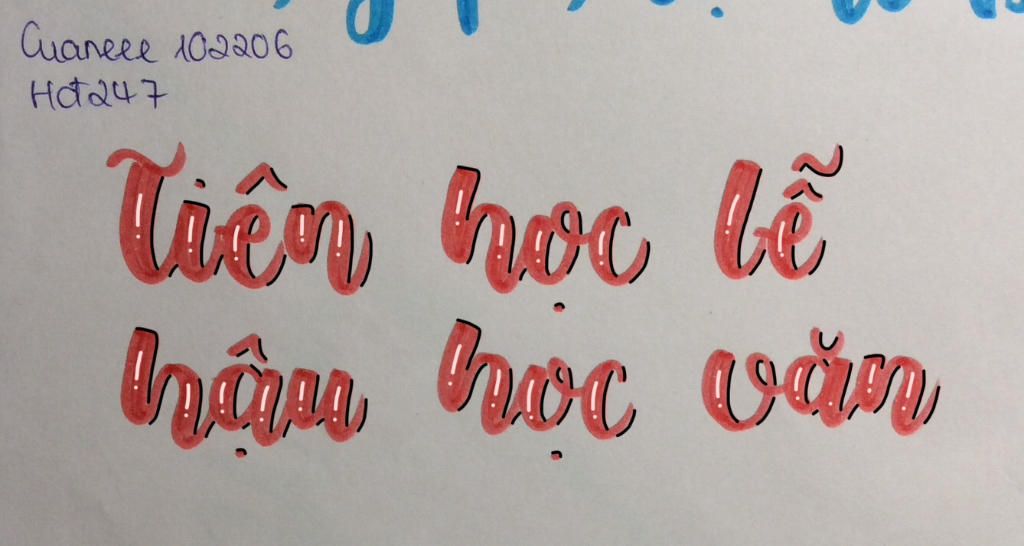 Cuaneee 102206
Hot247
Tiên học lễ
hậu học văn